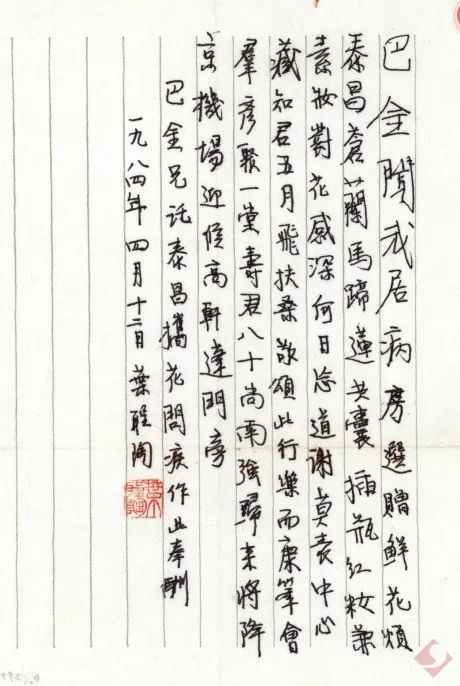 巴金聞我居病房選贈鮮花煩
泰昌蒼蘭馬蹄蓮共囊插瓶紅妝兼
素妝對花感深何日忘道謝莫表中心
藏知君五月飛扶桑敬頌此行樂而康筆會
羣彥聚一堂壽君八十尚南強歸來將降
京機場迎候高軒蓬門旁
巴金兄託泰昌攜花問疾作此奉酬
一九八四年四月十二日葉聖陶